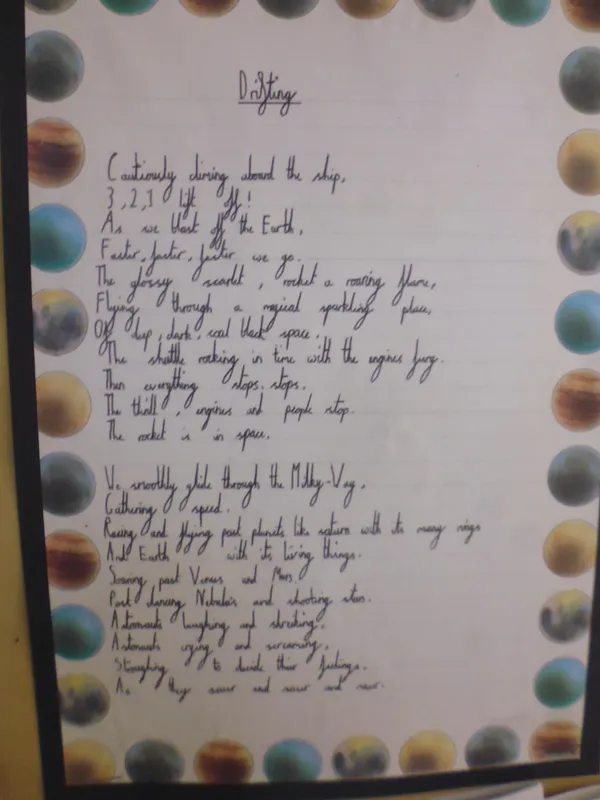 Drifting
Cautiously climing aboard the ship,
3,2,1 lift off!
As we blast off the Earth,
Faster, faster, faster we go.
The glossy scarlet, rocket a roaring flame,
Flying through a magical sparkling place,
Of deep, dark, coal black space,
The shuttle rocking in time with the engines fury.
Then everything stops. stops.
The thrill, engines and people stop.
The rocket is in space.
We smoothly glide through the Milky-Way,
Gathering speed.
Racing and flying past planets like saturn with its many rings
And Earth with its living things.
Soaring past Venus and Mars.
Past dancing Nebula's and shooting stars.
Astronauts laughing and shreiking,
Astronauts crying and screaming,
Struggling to decide their feelings.
As they soar and soar and soar.